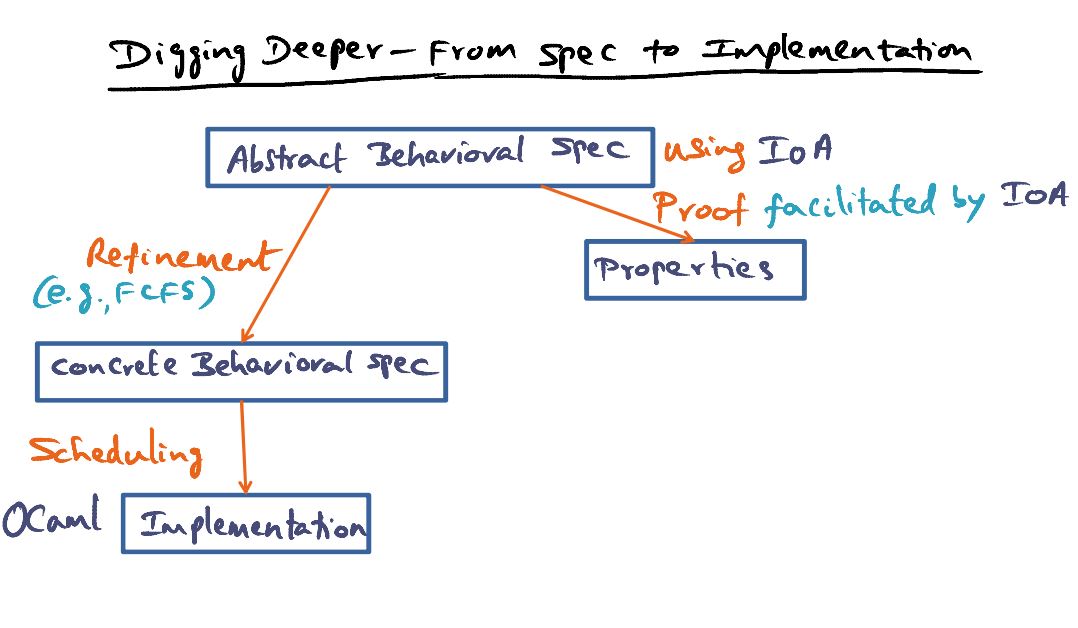 Digging Deeper - From spec to Implementation
Abstract Behavioral Spec using IOA
Proof facilitated by IOA
Refinement
(e.g., FCFS)
Properties
Concrete Behavioral spec
Scheduling
OCaml Implementation